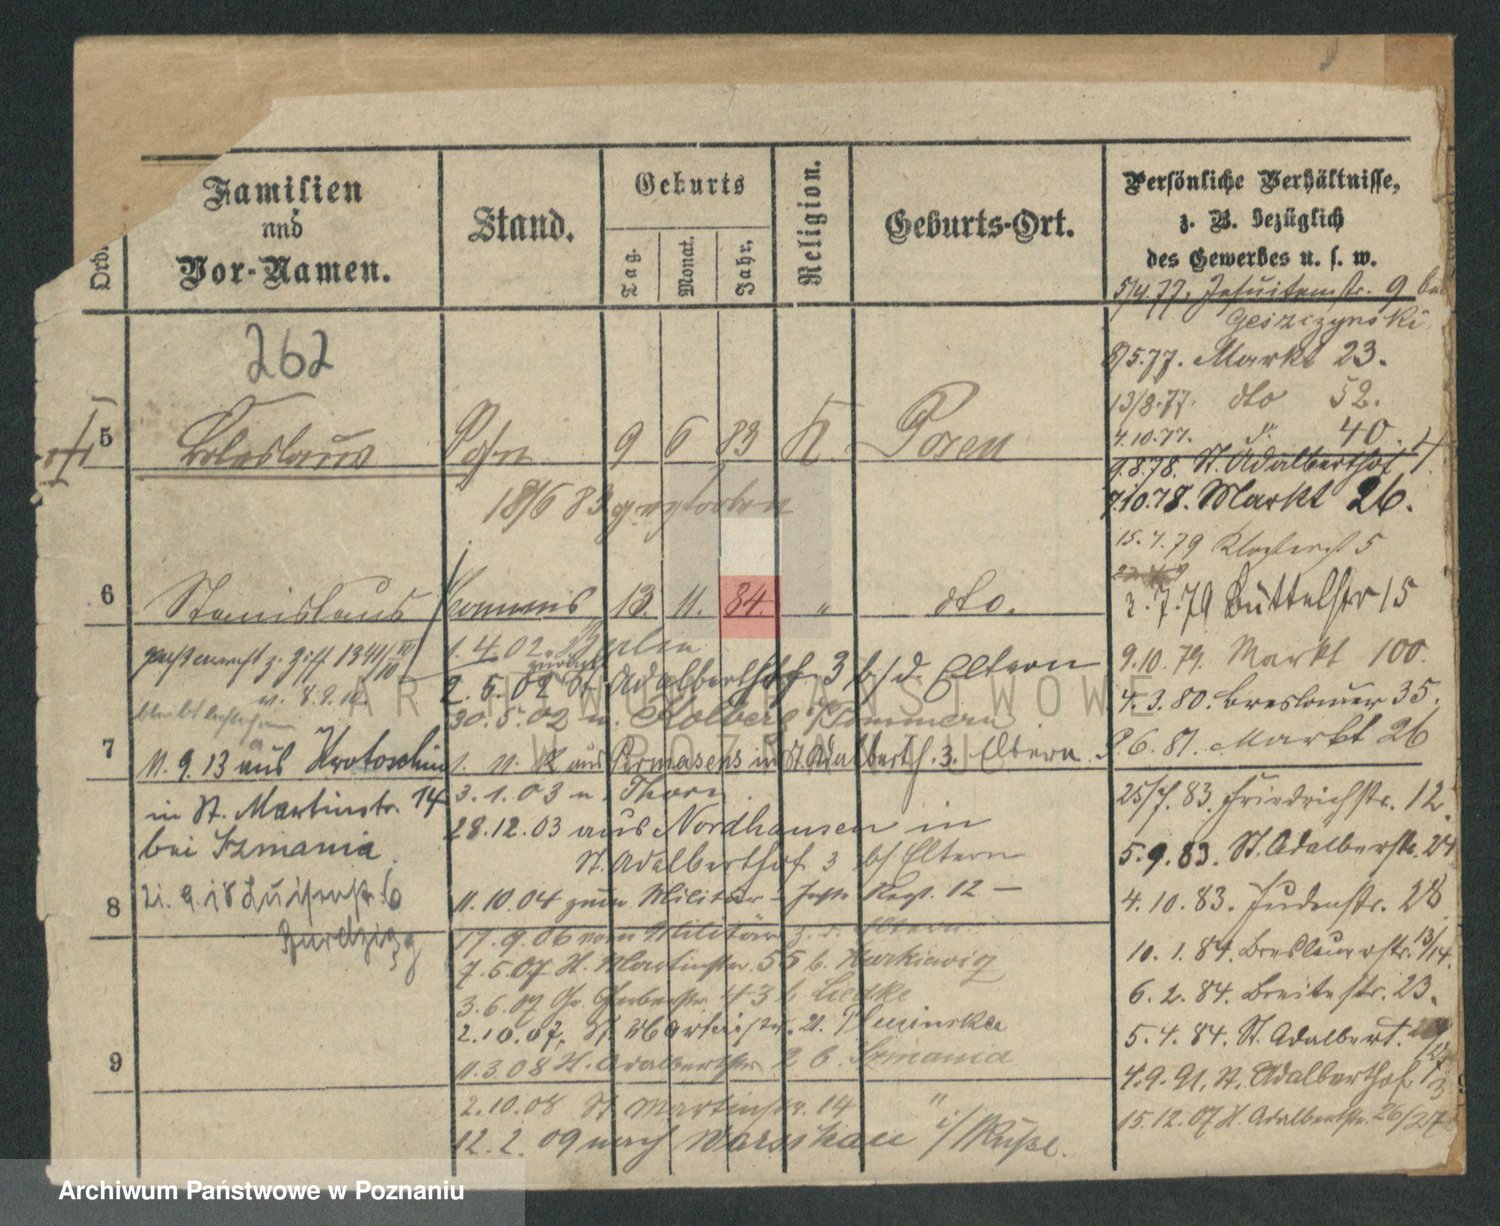 Ord.
Familien
und
Vor-Namen.
Stand.
Geburts
Tag.
Monat.
Jahr.
Religion.
Geburts-Ort.
Persönliche Verhältnisse,
z. B. bezüglich
des Gewerbes u. s. w.
5/4.77. Jesuitenstr. 9 bei
262
8/5.77. Markt 23.
13/8.77. dto 52.
4.10.77. d° 40.
5 Boleslaus Posn 9 6 83 K Posen
9.8.78. St. Adalberthof 4.
7.10.78. Markt 26.
18/6 83 gestorben
15.7.79 5
6 Stanislaus 13. 11. 84. " dto.
2.7.79 Büttelstr 15
1.4.02. Berlin
9.10.79. Markt 100.
2.5.02 zurück St. Adalberthof 3 b/d. Eltern
v. 8.9.10.
4.3.80. Breslauer 35.
30.5.02 n. Kolberg i/Pommern
9.6.81. Markt 26
7 11.9.13 aus Krotoschin
1. 11. 02 aus Pirmasens in St. Adalberth. 3. Eltern.
in St. Martinstr. 14
3.1.03 n. Thorn.
25/7.83. Friedrichstr. 12.
bei Szmania.
28.12.03 aus Nordhausen in
St. Adalberthof 3 b/Eltern
5.9.83. St. Adalbertstr. 24
8 21.9.18 Luisenstr. 6
11.10.04 zum Militär Regt. 12 –
4.10.83. Judenstr. 28
17.9.06 vom Militär z. d. Eltern
10.1.84. Breslauerstr. 13/14.
7.5.07 St. Martinstr. 55 b.
3.6.07 Gr. Gerberstr. 43 b. Liedke
6.2.84. Breitestr. 23.
2.10.07. St. Martinstr.
5.4.84. St. Adalbert.
9 11.3.08 St. Adalbertstr. 2 b. Szmania
4.9.91. St. Adalberthof
2.10.08 St. Martinstr. 14 "
15.12.07 St. Adalbertstr. 26/27
12.2.09 nach Warschau i/Russl.
ARCHIWUM PAŃSTWOWE
W POZNANIU
Archiwum Państwowe w Poznaniu